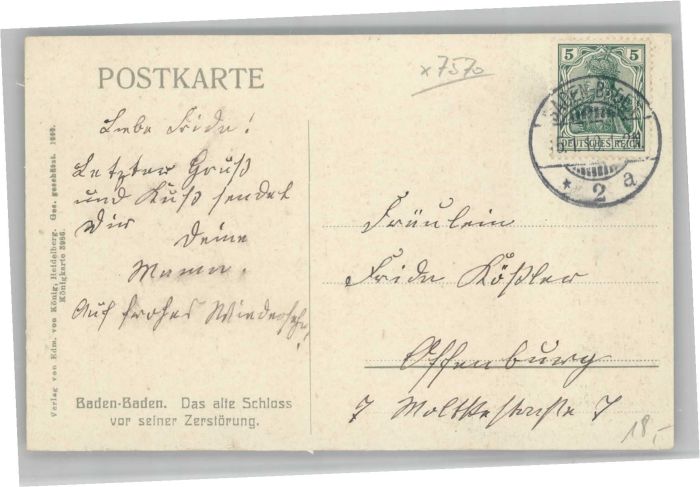 POSTKARTE
x7570
5
DEUTSCHES REICH
BADEN-BADEN
* 2 a
Liebe Frida!
Letzter Gruß
und Kuß sendet
Dir Deine
Mama.
Auf frohes Wiedersehn!
Fräulein
Frida Kößler
Offenburg
7 Moltkestraße 7
Baden-Baden. Das alte Schloss
vor seiner Zerstörung.
Verlag von Edm. von König, Heidelberg. Ges. geschützt. 1909.
Königkarte
18,-